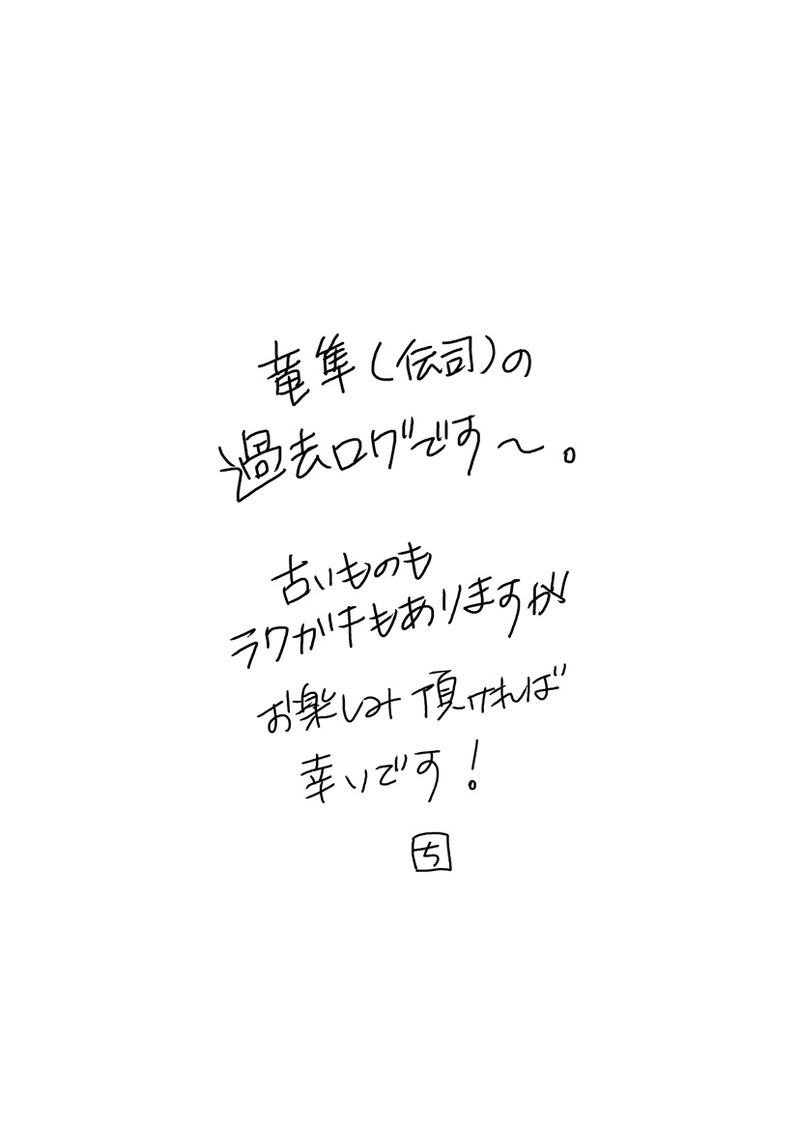 竜隼(伝司)の
過去ログです〜。
古いものも
ラクガキもありますが
お楽しみ頂ければ
幸いです!
ち